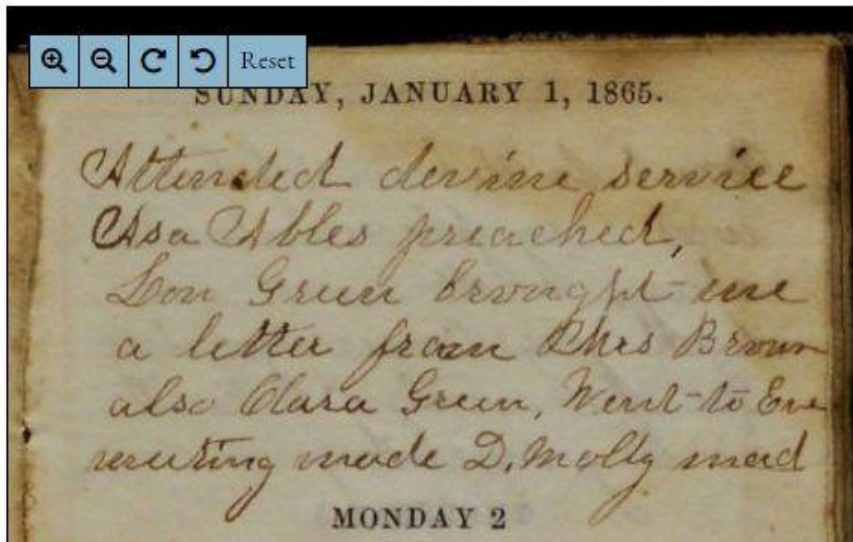 Reset
SUNDAY, JANUARY 1, 1865.
Attended devine service
Asa Ables preached,
Lon Green brought me
a letter from Chas Brown
also Clara Green, Went to Eve
meeting made D. Molly mad
MONDAY 2